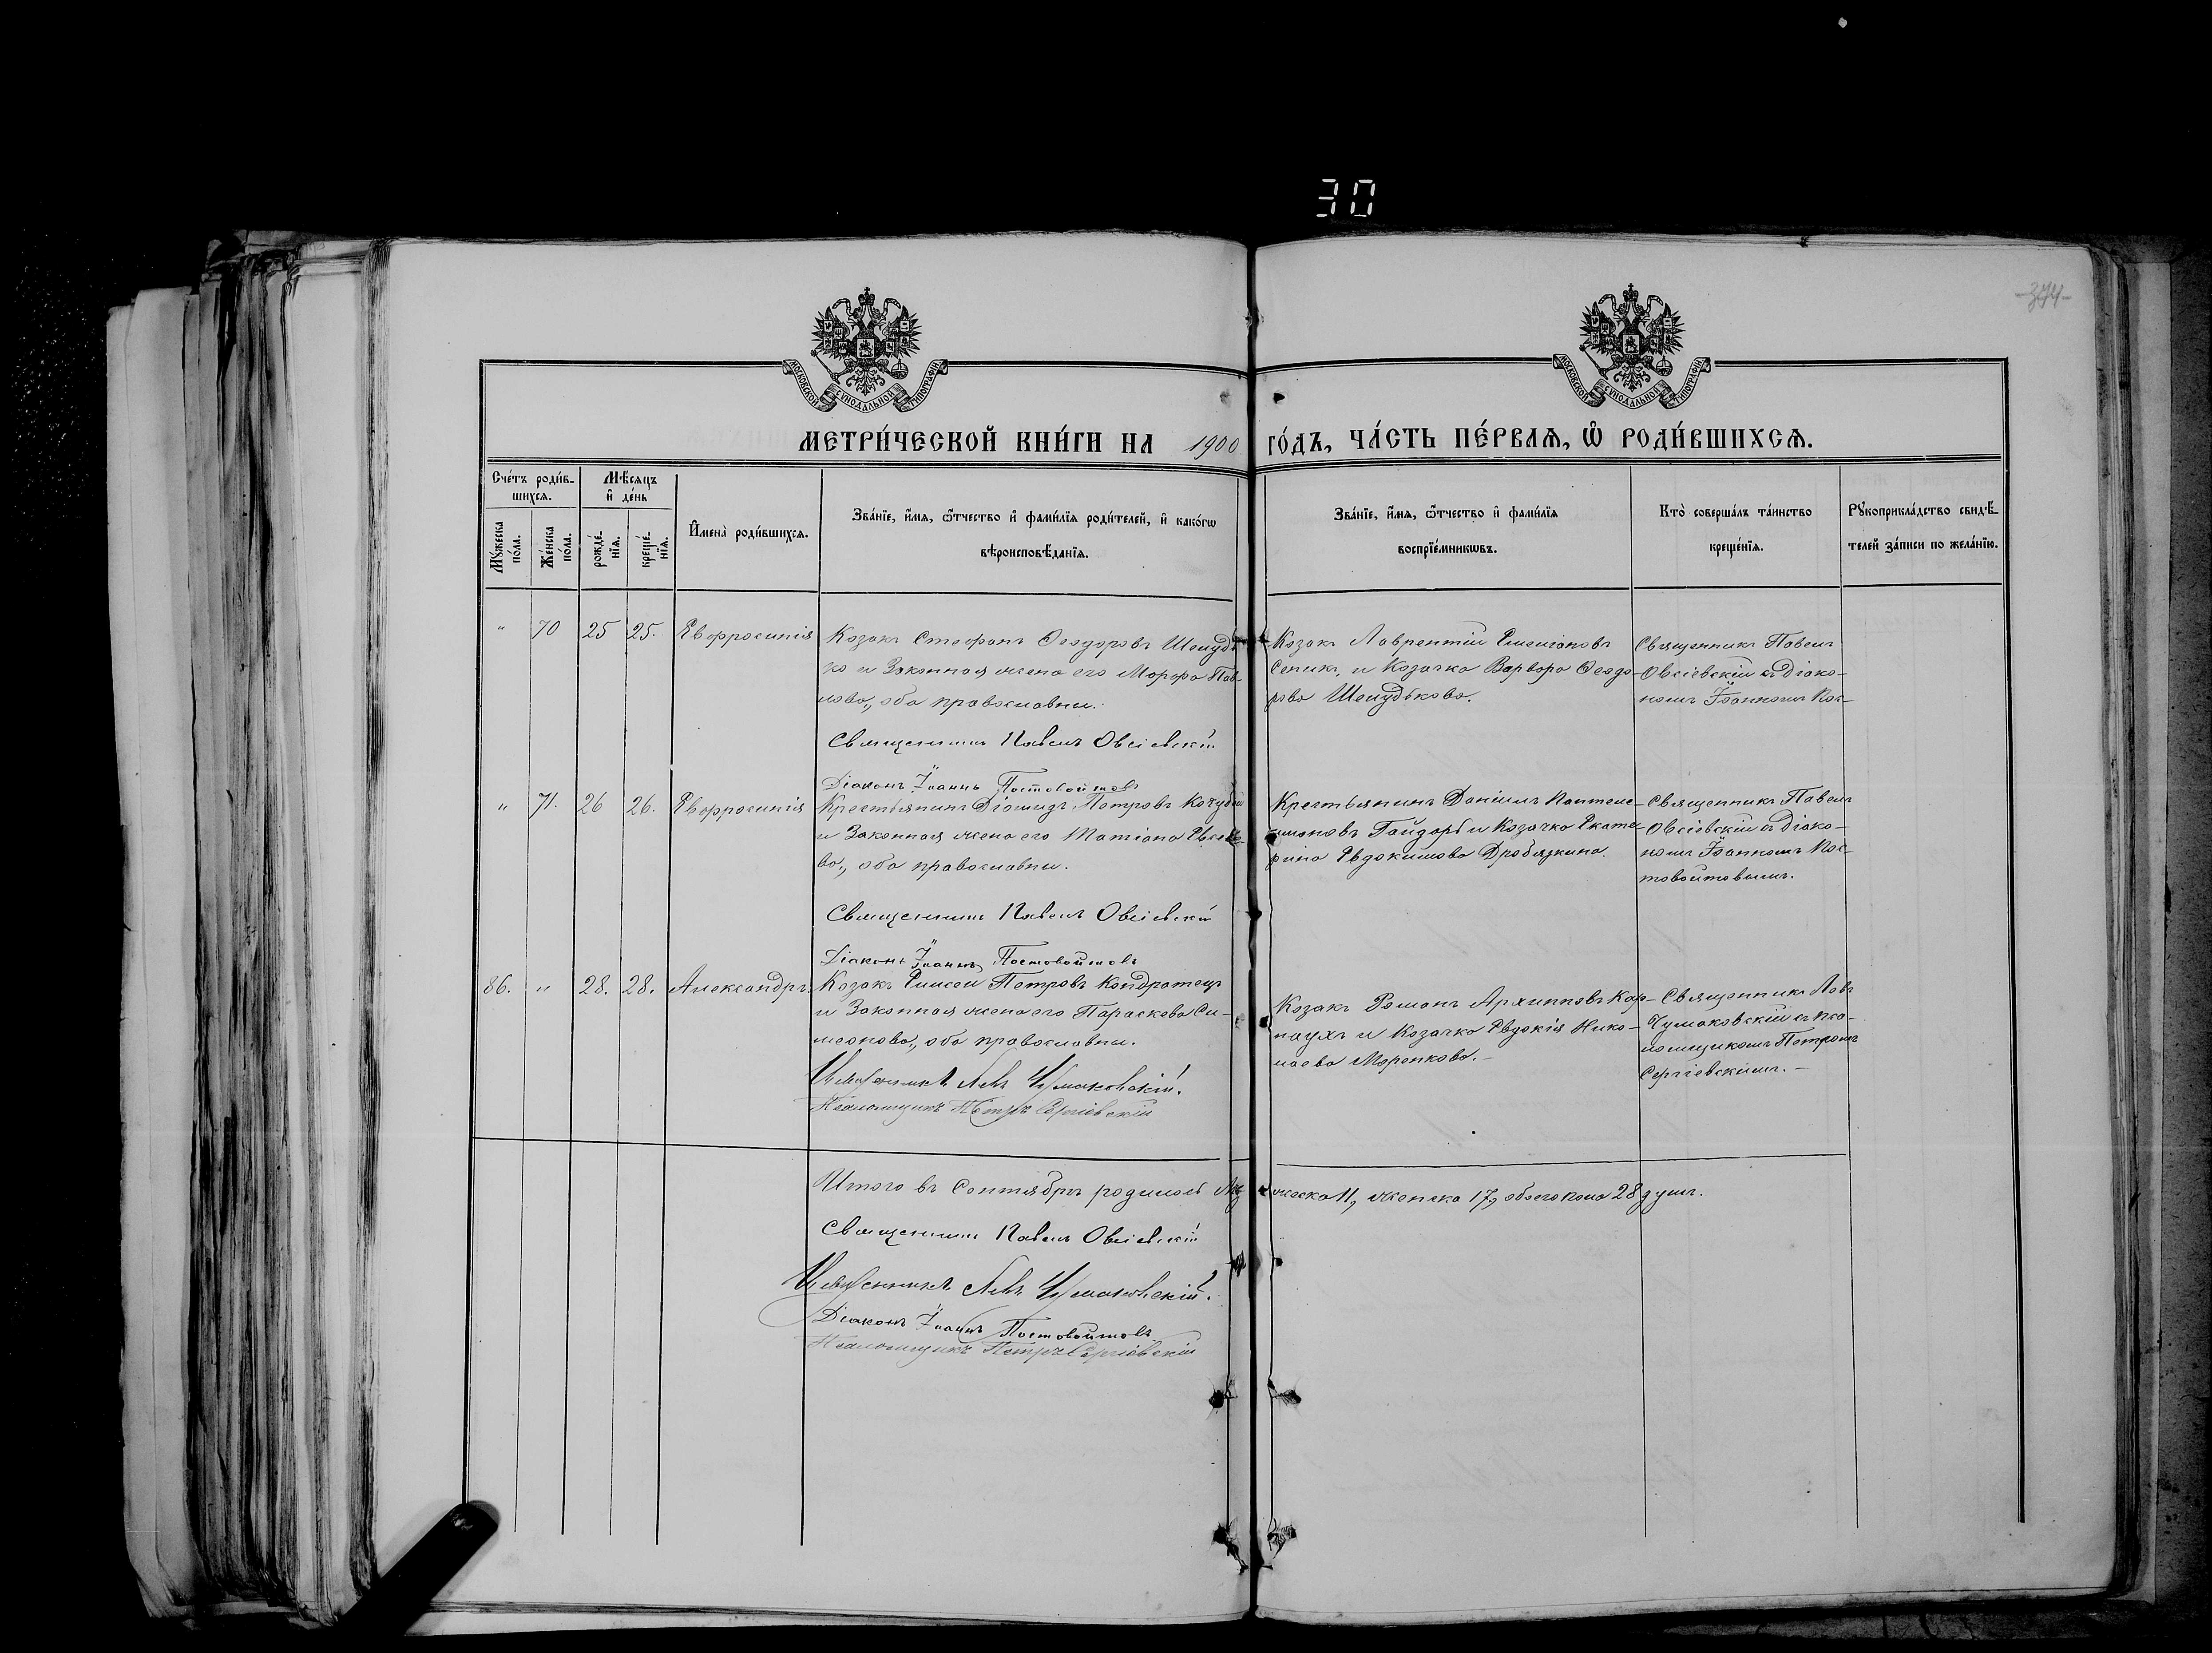 30
374
МОСКОВСКОЙ СѴНОДАЛЬНОЙ ТИПОГРАФІИ
МОСКОВСКОЙ СѴНОДАЛЬНОЙ ТИПОГРАФІИ
МЕТРИ́ЧЕСКОЙ КНИ́ГИ НА 1900 ГО́ДЪ, ЧА́СТЬ ПЕ́РВАѦ, Ѡ҆ РОДИ́ВШИХСѦ.
Сче́тъ роди́в-
шихсѧ.
Мꙋ́жеска по́ла.
Же́нска по́ла.
Мѣ́сяцъ
и҆ де́нь
рожде́-
нїѧ.
креще́-
нїѧ.
И҆мена̀ роди́вшихсѧ.
Зва́нїе, и҆́мѧ, ѻ҆́тчество и҆ фами́лїѧ роди́телей, и҆ како́гѡ
вѣроисповѣ́данїѧ.
Зва́нїе, и҆́мѧ, ѻ҆́тчество и҆ фами́лїѧ
воспрїе́мникѡвъ.
Кто̀ соверша́лъ та́инство
креще́нїѧ.
Рꙋкоприкла́дство свидѣ́-
телей за́писи по жела́нїю.
" 70 25 25. Евфросинія
Козакъ Стефанъ Ѳеодоровъ Шелудь-
ко и Законная жена его Марфа Пав-
лова, оба православны.
Священникъ Павелъ Овсіевскій
Діаконъ Іоаннъ Постовойтовъ
Козакъ Лаврентій Емеліановъ
Сепикъ, и Козачка Варвара Ѳеодо-
рова Шелудькова.
Священникъ Павелъ
Овсіевскій съ Діако-
номъ Іоанномъ Пос-
" 71. 26 26. Евфросинія
Крестьянинъ Діомидъ Петровъ Кочубей
и Законная жена его Татіана Евсее-
ва, оба православны.
Священникъ Павелъ Овсіевскій
Діаконъ Іоаннъ Постовойтовъ
Крестьянинъ Даніилъ Пантеле-
имоновъ Гайдаръ и Козачка Екате-
рина Евдокимова Дробязкина.
Священникъ Павелъ
Овсіевскій съ Діако-
номъ Іоанномъ Пос-
товойтовымъ.
86. " 28. 28. Александръ.
Козакъ Елисей Петровъ Кондратецъ
и Законная жена его Параскева Си-
меонова, оба православны.
Священникъ Левъ Чумаковскій.
Псаломщикъ Петръ Сергіевскій
Козакъ Романъ Архиповъ Кар-
наухъ и Козачка Евдокія Нико-
лаева Маренкова.
Священникъ Левъ
Чумаковскій съ пса-
ломщикомъ Петромъ
Сергіевскимъ.
Итого въ Сентябрѣ родилось Мужеска 11, женска 17, обоего пола 28 душъ.
Священникъ Павелъ Овсіевскій
Священникъ Левъ Чумаковскій.
Діаконъ Іоаннъ Постовойтовъ
Псаломщикъ Петръ Сергіевскій